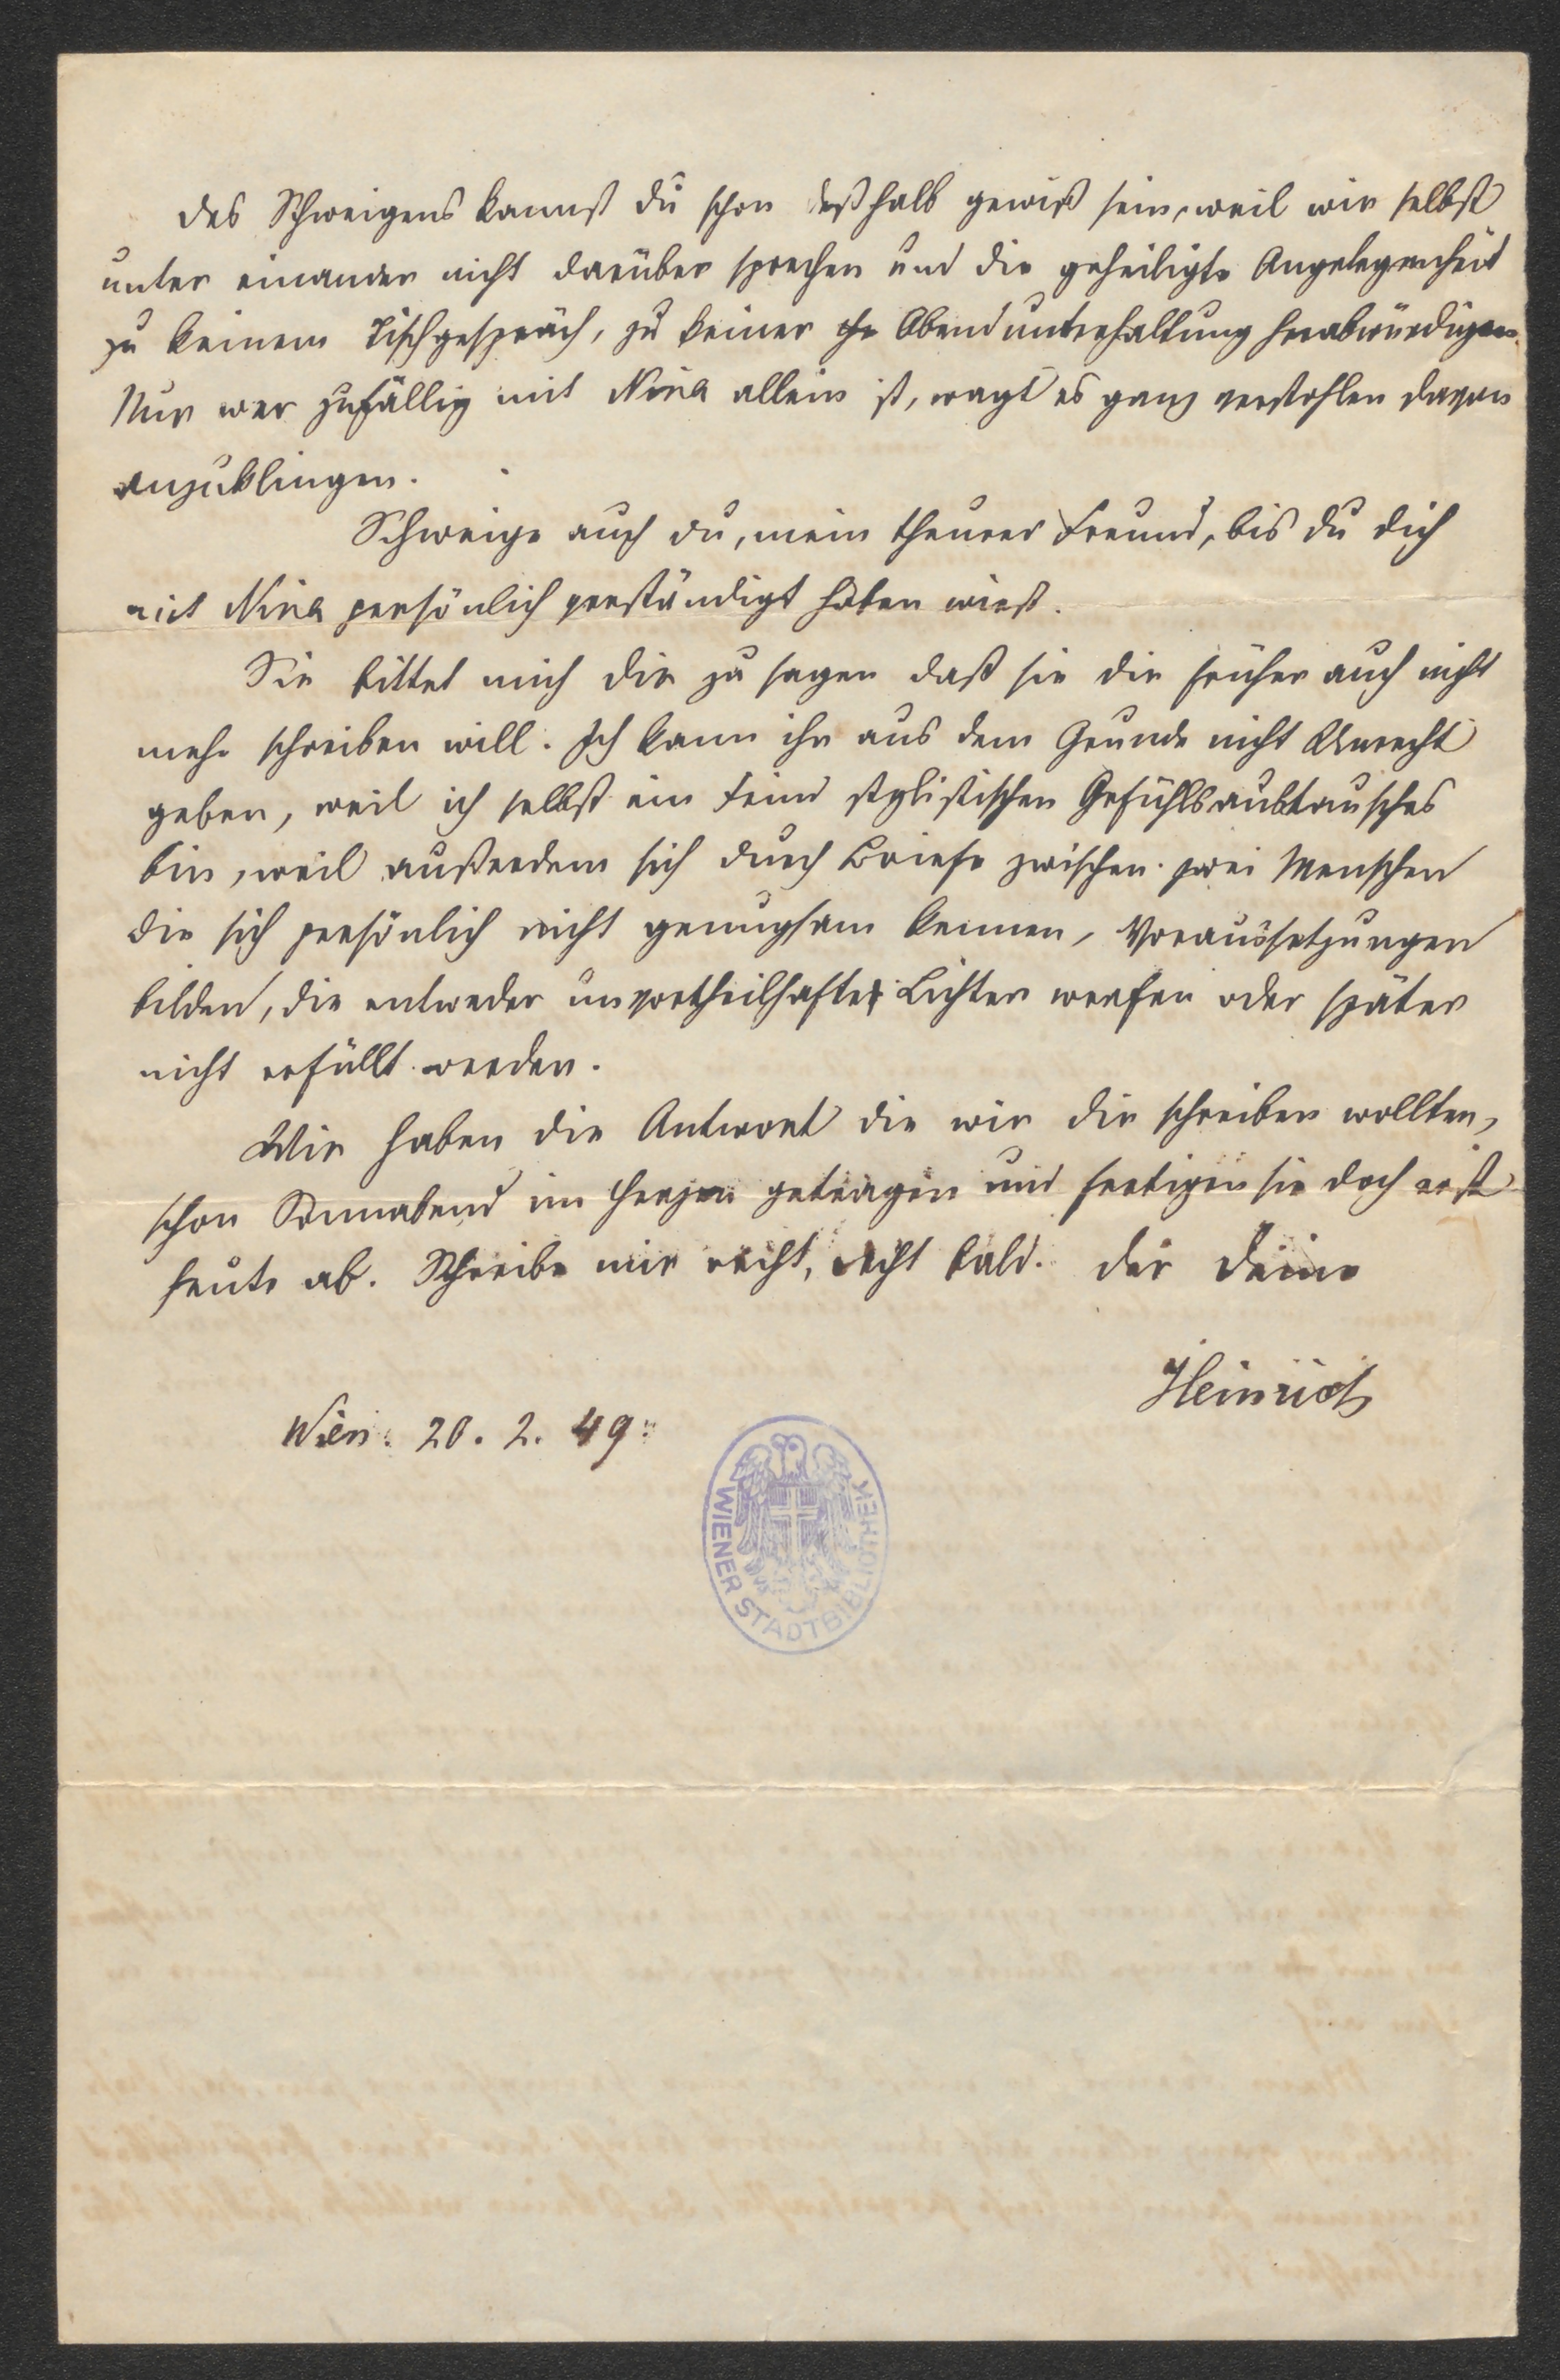 Des Schweigens kannst du schon deßhalb gewiß sein, weil wir selbst
unter einander nicht darüber sprechen und die geheiligte Angelegenheit
zu keinem Tischgespräch, zu keiner Abendunterhaltung herabwürdigen.
Nur wer zufällig mit Nina allein ist, wagt es ganz verstohlen davon
anzuklingen.
Schweige auch du, mein theurer Freund, bis du dich
mit Nina persönlich verständigt haben wirst.
Sie bittet mich dir zu sagen daß sie dir früher auch nicht
mehr schreiben will. Ich kann ihr aus dem Grunde nicht Unrecht
geben, weil ich selbst ein Feind stylistischen Gefühlsaustausches
bin, weil außerdem sich durch Briefe zwischen zwei Menschen
die sich persönlich nicht genugsam kennen, Voraussetzungen
bilden, die entweder unvortheilhafte Lichter werfen oder später
nicht erfüllt werden.
Wir haben die Antwort die wir dir schreiben wollten,
schon Sonnabend im Herzen getragen und fertigen sie doch erst
heute ab. Schreibe mir recht, recht bald. Der Deine
Heinrich
Wien. 20. 2. 49.
WIENER STADTBIBLIOTHEK